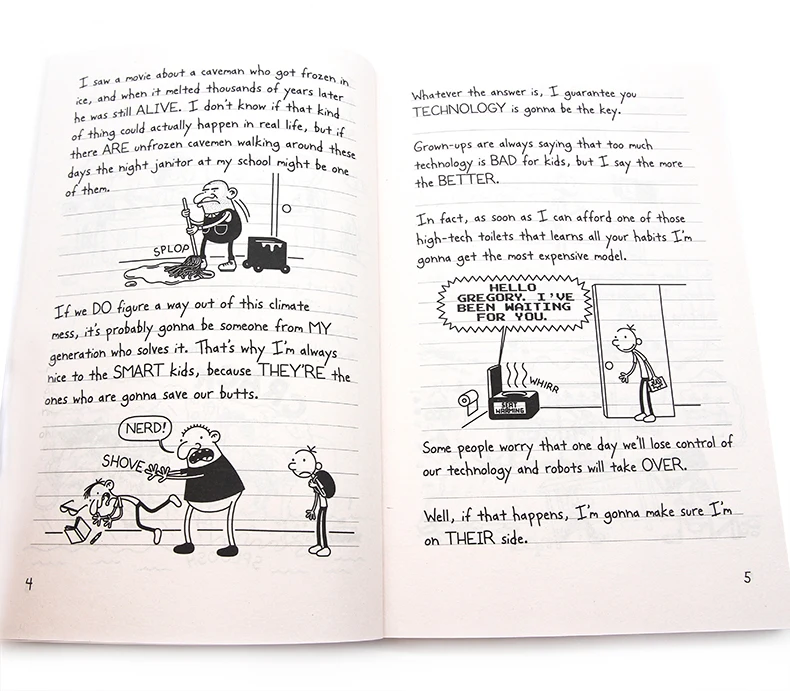 I saw a movie about a caveman who got frozen in
ice, and when it melted thousands of years later
he was still ALIVE. I don't know if that kind
of thing could actually happen in real life, but if
there ARE unfrozen cavemen walking around these
days the night janitor at my school might be one
of them.
SPLOP
If we DO figure a way out of this climate
mess, it's probably gonna be someone from MY
generation who solves it. That's why I'm always
nice to the SMART kids, because THEY'RE the
ones who are gonna save our butts.
NERD!
SHOVE
4
Whatever the answer is, I guarantee you
TECHNOLOGY is gonna be the key.
Grown-ups are always saying that too much
technology is BAD for kids, but I say the more
the BETTER.
In fact, as soon as I can afford one of those
high-tech toilets that learns all your habits I'm
gonna get the most expensive model.
HELLO
GREGORY. I'VE
BEEN WAITING
FOR YOU.
WHIRR
SEAT
WARMING
Some people worry that one day we'll lose control of
our technology and robots will take OVER.
Well, if that happens, I'm gonna make sure I'm
on THEIR side.
5